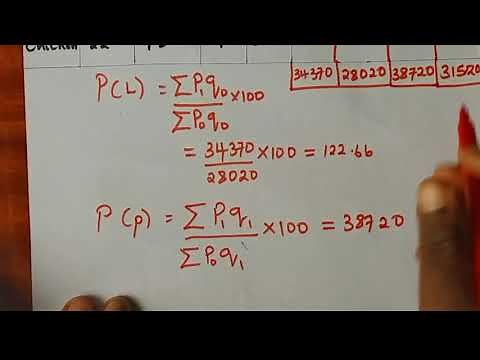 Chicken 22
34370 28020 38720 31520
P(L) = ΣP₁q₀ / ΣP₀q₀ ×100
= 34370 / 28020 ×100 = 122.66
P(p) = ΣP₁q₁ / ΣP₀q₁ ×100 = 38720